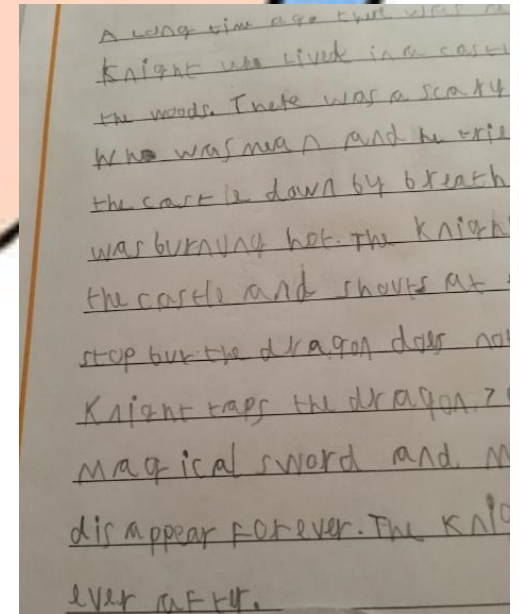 A long time ago there was
Knight who lived in a
the woods. There was a scary
Who was mean and he
the castle down by
was burnung hot. The
the castle and shouts at
stop but the dragon does
Knight taps the dragon
magical sword and
disappear forever. The
ever after.